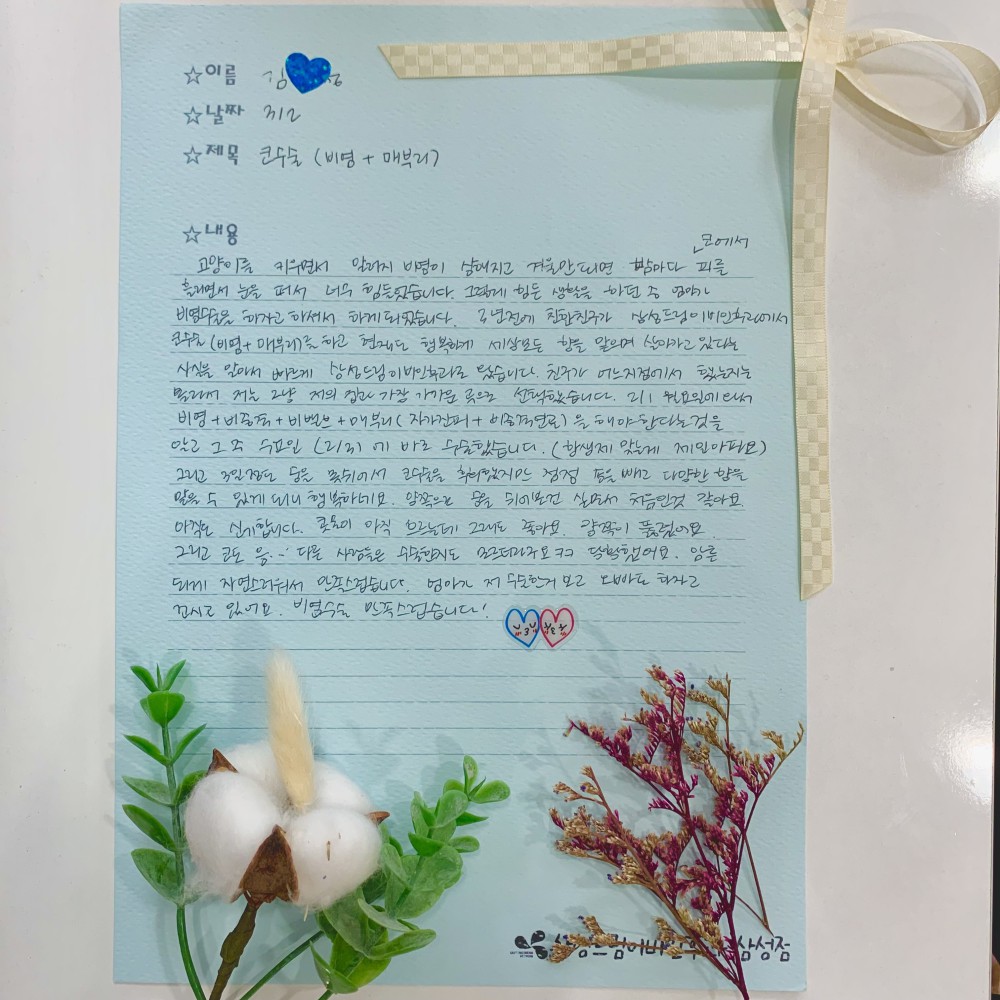 ☆이름 김
☆날짜 3/2
☆제목 코수술 (비염 + 매부리)
☆내용
코에서
고양이를 키우면서 알러지 비염이 심해지고 겨울만 되면 밤마다 피를
흘리면서 눈을 떠서 너무 힘들었습니다. 그렇게 힘든 생활을 하던 중 엄마가
비염수술을 하자고 하셔서 하게 되었습니다. 년전에 친한친구가 삼성드림이비인후과에서
코수술 (비염 + 매부리)를 하고 현재도 행복하게 세상모든 향을 맡으며 살아가고 있다는
사실을 알아서 빠르게 삼성드림이비인후과로 왔습니다. 친구가 어느지점에서 했는지는
몰라서 저는 그냥 저의 집과 가장 가까운 곳으로 선택했습니다. 2/1 월요일에 와서
비염 + 비중격 + 비밸브 + 매부리 (자가진피 + 비중격연골)을 해야한다는것을
알고 그 주 수요일 (2/3)에 바로 수술했습니다. (항생제 맞는게 제일아파요)
그리고 3일정도 숨을 못쉬어서 코수술을 후회했지만 점점 붓을 빼고 다양한 향을
맡을 수 있게 되니 행복하네요. 양쪽으로 숨을 쉬어본건 살면서 처음인것 같아요.
아직도 신기합니다. 콧물이 아직 흐르는데 그래도 좋아요. 양쪽이 뚫렸어요.
그리고 코도 음.. 다른 사람들은 수술한지도 모르더라구요ㅋㅋ 딱하했어요. 암튼
되게 자연스러워서 만족스럽습니다. 엄마가 저 수술한거 보고 오빠도 하자고
꼬시고 있어요. 비염수술 만족스럽습니다!
삼성점